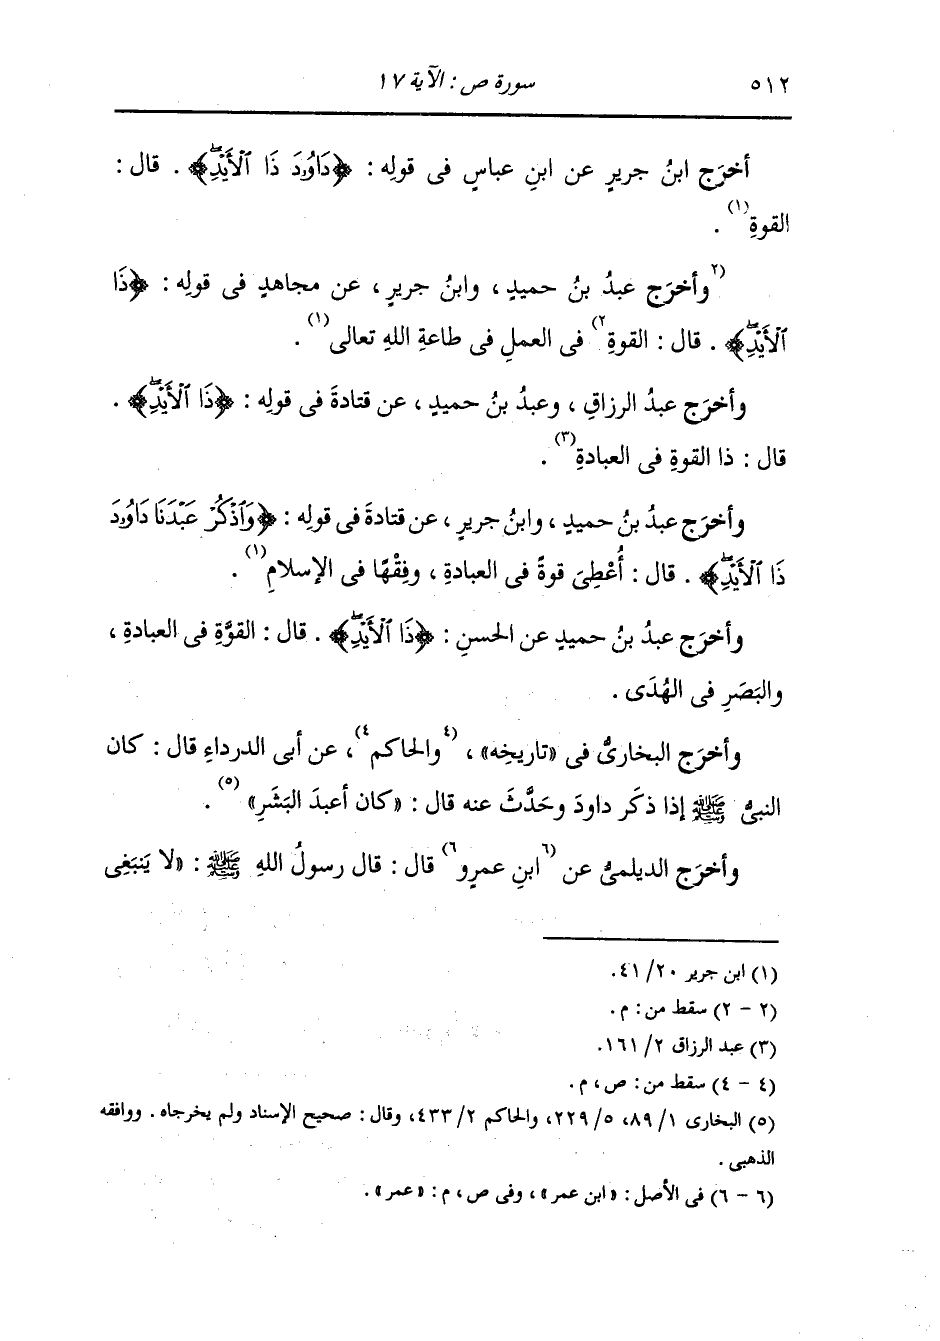 ٥١٢ سورة ص : الآية ١٧
أخرَج ابنُ جريرٍ عن ابنِ عباسٍ فى قولِه : ﴿دَاوُۥدَ ذَا ٱلْأَيْدِۖ﴾ . قال :
القوةِ(١) .
(٢وأخرَج عبدُ بنُ حميدٍ ، وابنُ جريرٍ ، عن مجاهدٍ فى قولِه : ﴿ذَا
ٱلْأَيْدِۖ﴾ . قال : القوةِ٢) فى العملِ فى طاعةِ اللهِ تعالى(١) .
وأخرَج عبدُ الرزاقِ ، وعبدُ بنُ حميدٍ ، عن قتادةَ فى قولِه : ﴿ذَا ٱلْأَيْدِۖ﴾ .
قال : ذا القوةِ فى العبادةِ(٣) .
وأخرَج عبدُ بنُ حميدٍ ، وابنُ جريرٍ ، عن قتادةَ فى قولِه : ﴿وَٱذْكُرْ عَبْدَنَا دَاوُۥدَ
ذَا ٱلْأَيْدِۖ﴾ . قال : أُعْطِىَ قوةً فى العبادةِ ، وفِقْهًا فى الإسلامِ(١) .
وأخرَج عبدُ بنُ حميدٍ عن الحسنِ : ﴿ذَا ٱلْأَيْدِۖ﴾ . قال : القوَّةِ فى العبادةِ ،
والبَصَرِ فى الهُدَى .
وأخرَج البخارىُّ فى «تاريخِه» ، (٤والحاكم٤) ، عن أبى الدرداءِ قال : كان
النبىُّ ﷺ إذا ذكَر داودَ وحَدَّثَ عنه قال : «كان أعبدَ البَشَرِ»(٥) .
وأخرَج الديلمىُّ عن (٦ابنِ عمرٍو٦) قال : قال رسولُ اللهِ ﷺ : «لا يَنبَغِى
(١) ابن جرير ٢٠/ ٤١.
(٢ - ٢) سقط من : م.
(٣) عبد الرزاق ٢/ ١٦١.
(٤ - ٤) سقط من : ص ، م.
(٥) البخارى ١/ ٨٩، ٥/ ٢٢٩، والحاكم ٢/ ٤٣٣، وقال : صحيح الإسناد ولم يخرجاه . ووافقه
الذهبى .
(٦ - ٦) فى الأصل : «ابن عمر» ، وفى ص ، م : «عمر» .